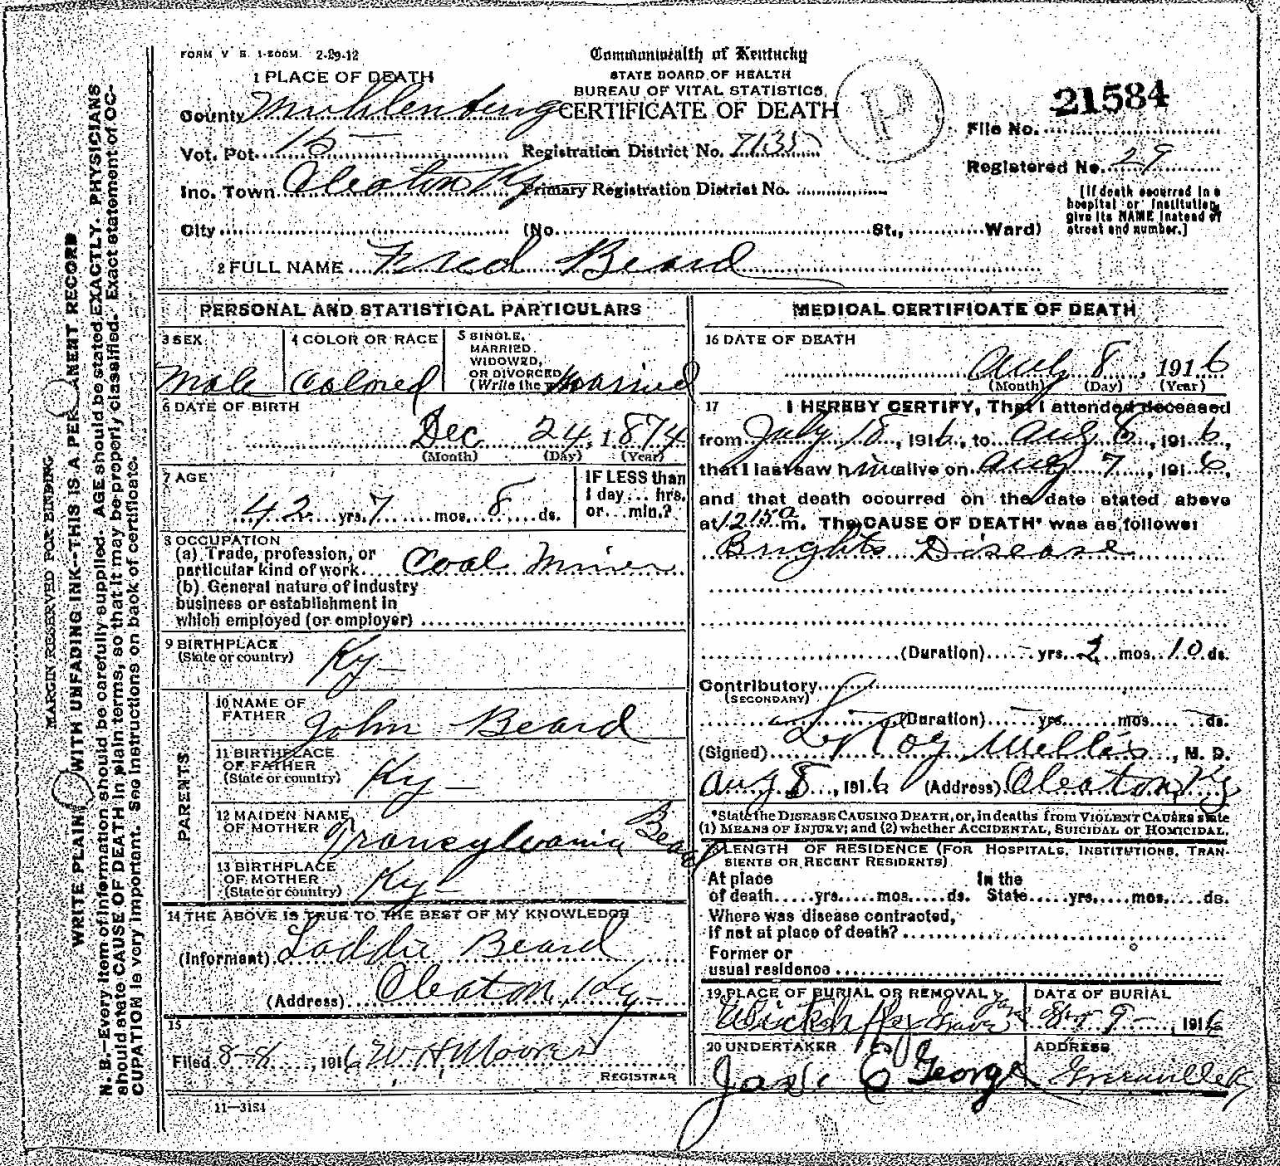 FORM V. S. 1-500M. 2-29-12
Commonwealth of Kentucky
STATE BOARD OF HEALTH
BUREAU OF VITAL STATISTICS
CERTIFICATE OF DEATH
1 PLACE OF DEATH
County Muhlenberg
Vot. Pot. 15
Registration District No. 7135
Ino. Town Cleaton Ky
Primary Registration District No.
City (No. St., Ward)
P
21584
File No.
Registered No. 29
[If death occurred in a hospital or institution, give its NAME instead of street and number.]
2 FULL NAME Fred Beard
PERSONAL AND STATISTICAL PARTICULARS
3 SEX
Male
4 COLOR OR RACE
Colored
5 SINGLE, MARRIED, WIDOWED, OR DIVORCED (Write the
Married
6 DATE OF BIRTH
Dec 24, 1874
(Month) (Day) (Year)
7 AGE
42 yrs. 7 mos. 8 ds.
IF LESS than 1 day... hrs. or... min.?
8 OCCUPATION
(a) Trade, profession, or particular kind of work Coal Miner
(b) General nature of industry business or establishment in which employed (or employer)
9 BIRTHPLACE
(State or country) Ky
PARENTS
10 NAME OF FATHER John Beard
11 BIRTHPLACE OF FATHER
(State or country) Ky
12 MAIDEN NAME OF MOTHER Transylvania Beard
13 BIRTHPLACE OF MOTHER
(State or country) Ky
14 THE ABOVE IS TRUE TO THE BEST OF MY KNOWLEDGE
(Informant) Beard
(Address) Cleaton, Ky
15
Filed 8-8, 1916 W H Moore
REGISTRAR
11—3184
MEDICAL CERTIFICATE OF DEATH
16 DATE OF DEATH
Aug 8, 1916
(Month) (Day) (Year)
17 I HEREBY CERTIFY, That I attended deceased
from July 18, 1916, to Aug 8, 1916,
that I last saw him alive on Aug 7, 1916,
and that death occurred on the date stated above
at 12 15 a m. The CAUSE OF DEATH* was as follows:
Brights Disease
(Duration) yrs. 2 mos. 10 ds.
Contributory
(SECONDARY)
(Duration) yrs. mos. ds.
(Signed) LeRoy Willis, M. D.
Aug 8, 1916 (Address) Cleaton, Ky
*State the DISEASE CAUSING DEATH, or, in deaths from VIOLENT CAUSES state (1) MEANS OF INJURY; and (2) whether ACCIDENTAL, SUICIDAL or HOMICIDAL.
LENGTH OF RESIDENCE (FOR HOSPITALS, INSTITUTIONS, TRANSIENTS OR RECENT RESIDENTS)
At place of death yrs. mos. ds. In the State yrs. mos. ds.
Where was disease contracted, if not at place of death?
Former or usual residence
19 PLACE OF BURIAL OR REMOVAL
DATE OF BURIAL
9, 1916
20 UNDERTAKER
E George
ADDRESS
Greenville Ky
MARGIN RESERVED FOR BINDING
WRITE PLAINLY WITH UNFADING INK—THIS IS A PERMANENT RECORD
N. B.—Every item of information should be carefully supplied. AGE should be stated EXACTLY. PHYSICIANS
should state CAUSE OF DEATH in plain terms, so that it may be properly classified. Exact statement of OC-
CUPATION is very important. See instructions on back of certificate.